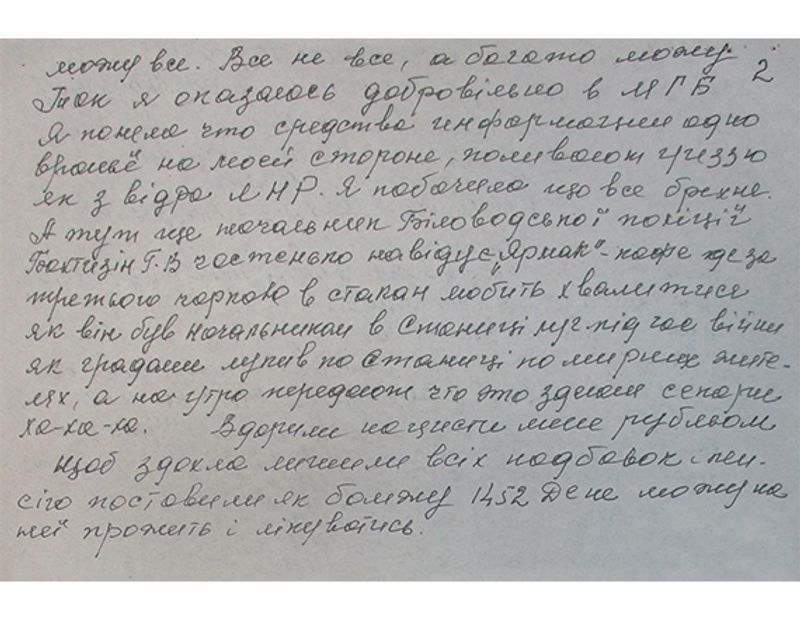 можу все. Все не все, а богато можу. 2
Так я опазалась добровільно в МГБ
Я понела что средства информации одно
враньё на моей стороне, поливают грязью
як з відра ЛНР. Я побачила що все брехня.
А тут ще начальник Біловодської поліції
Бактизін Г.В частенько навідує „Ярмак"-кафе де за
третього чаркою в стакан любить хвалитися
як він був начальником в Станиці луг. під час війни
як градами лупив по Станиці по мирних жите-
лях, а на утро передают что это зделали сепари
ха-ха-ха. Вдарили нацисти мене рубльом
щоб здохла лишили всіх надбавок і пен-
сію поставили як бомжу 1452 Де не можу на
неї прожить і лікуватись.